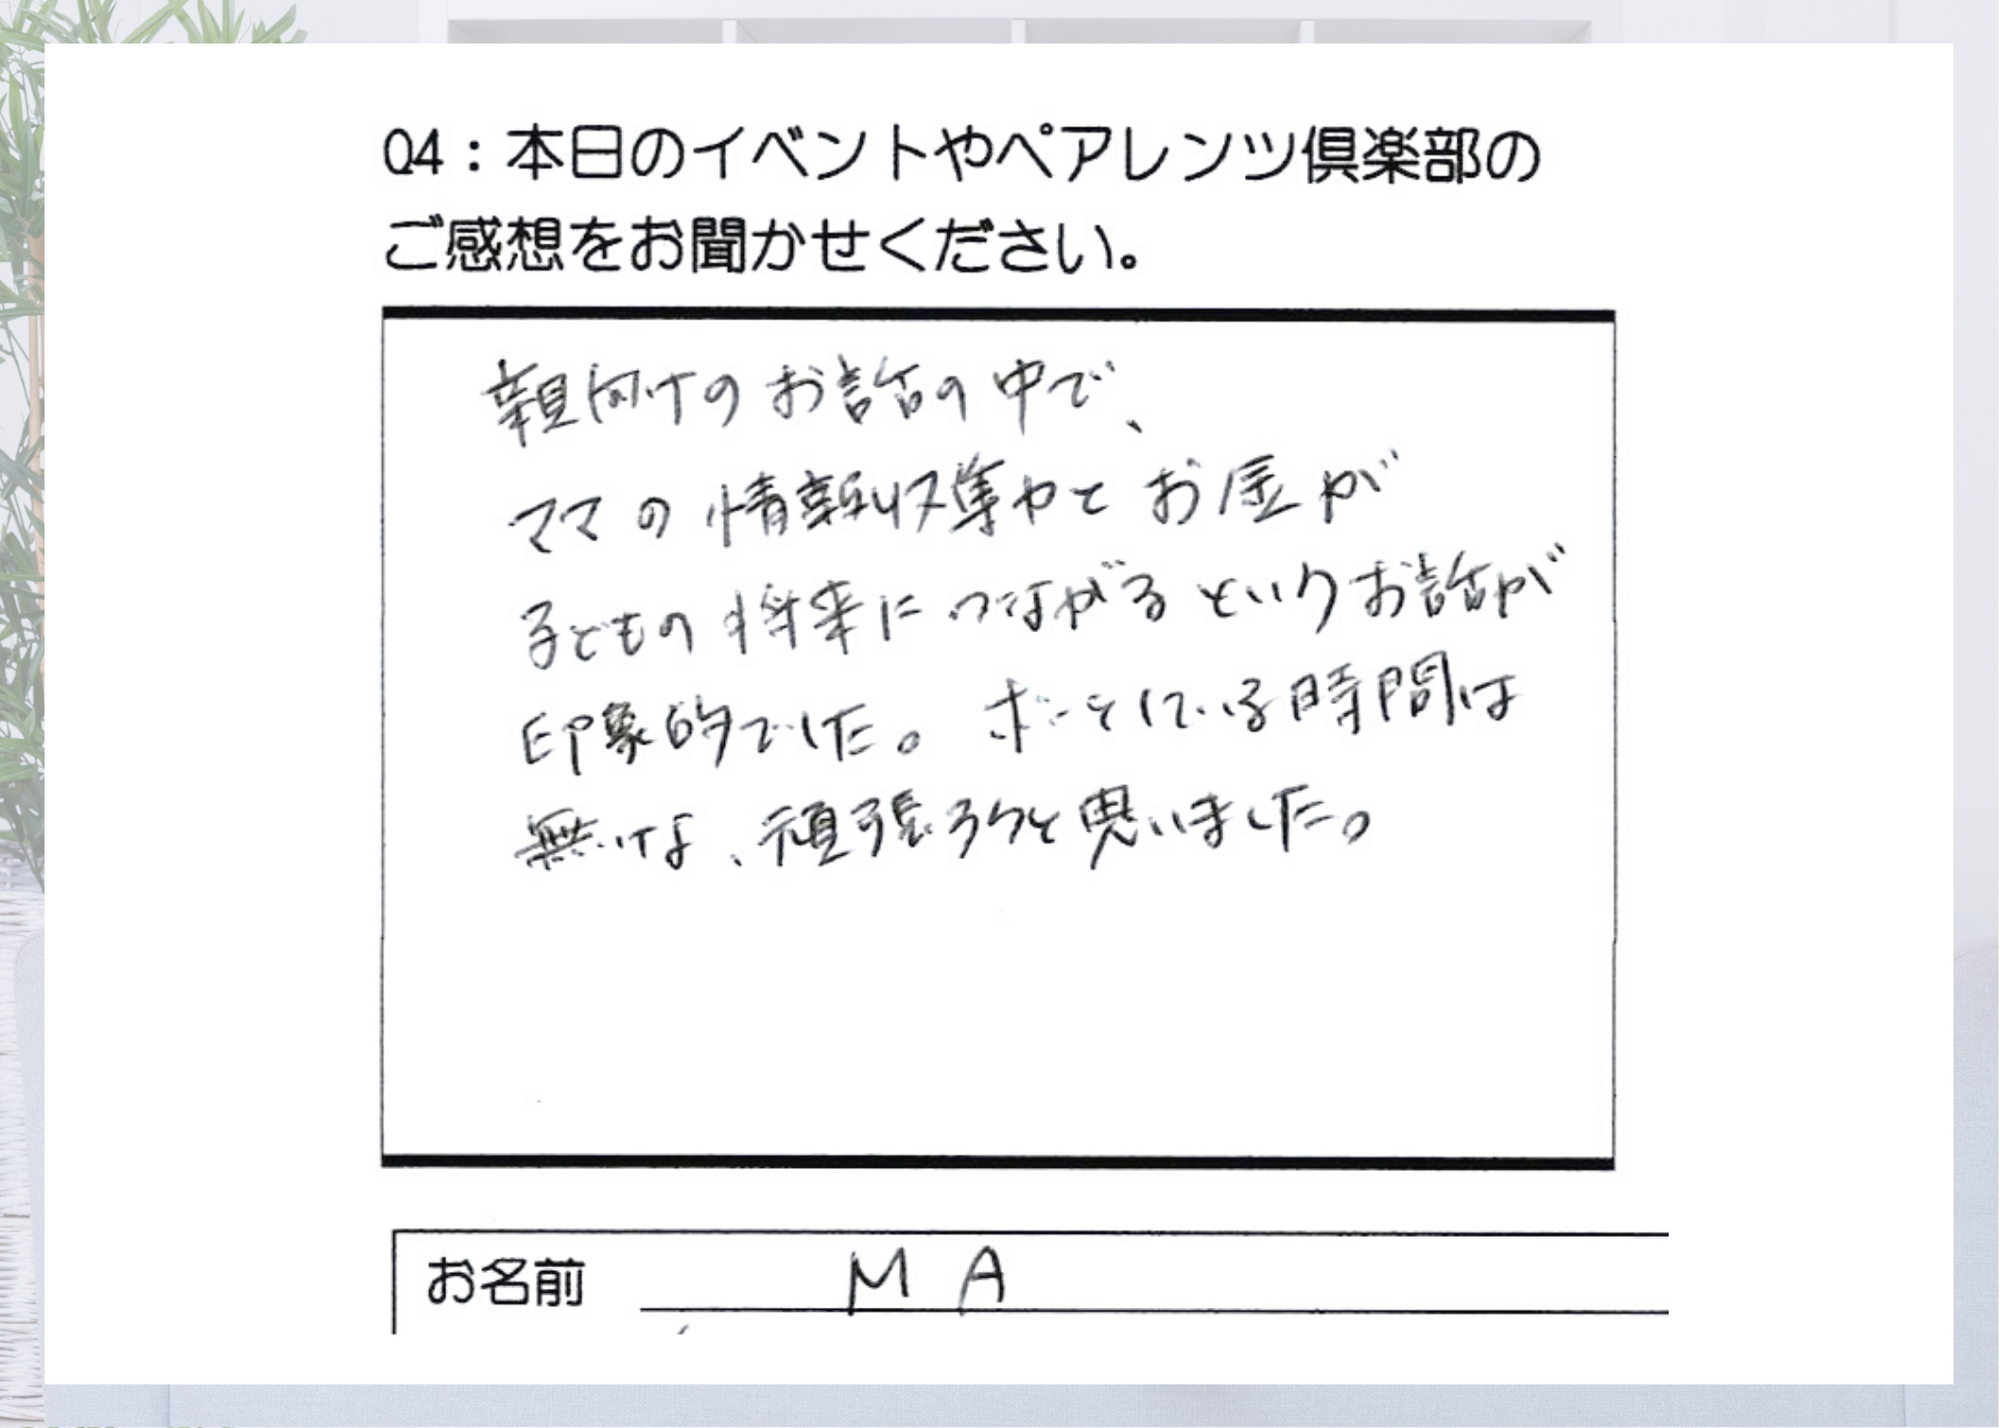 Q4：本日のイベントやペアレンツ倶楽部の
ご感想をお聞かせください。
親向けのお話の中で、
ママの情報収集力とお金が
子どもの将来につながるというお話が
印象的でした。ボーとしている時間は
無いけど、頑張ろうと思いました。
お名前 M A